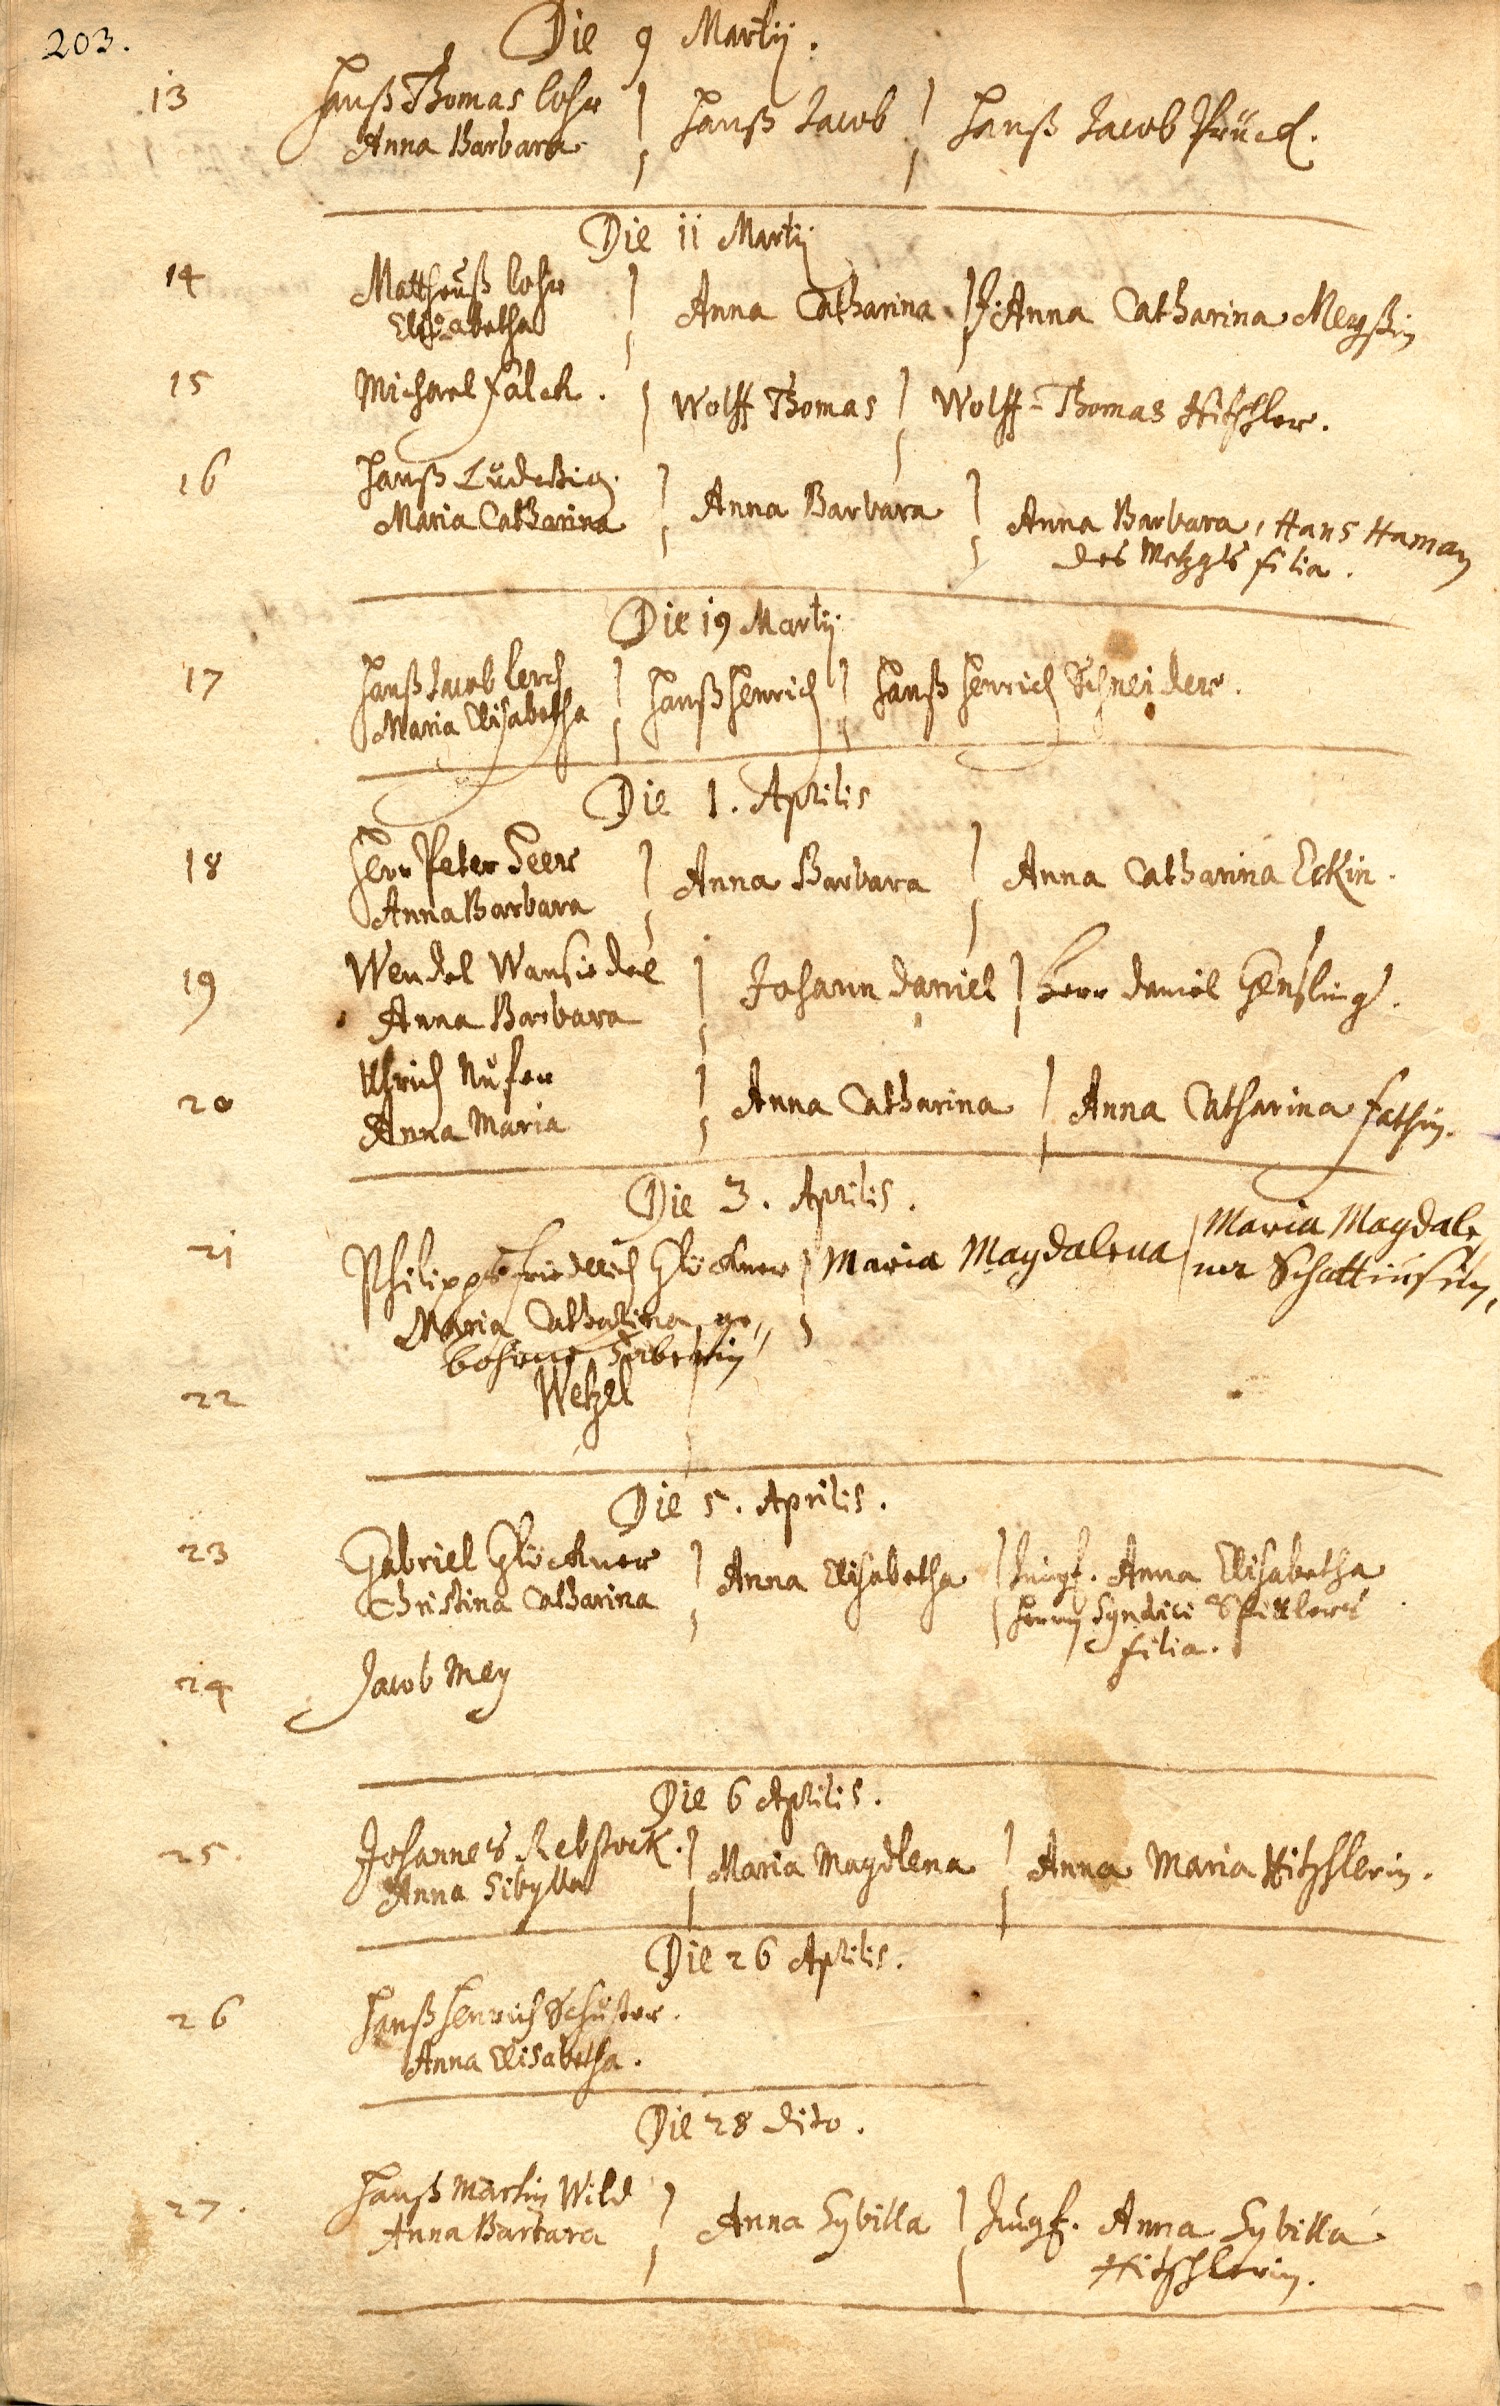 203.
Die 9 Martij.
13 Hanß Thomas Lohr } Hanß Jacob } Hanß Jacob Prück.
Anna Barbara
Die 11 Martij
14 Mattheuß Lohr } Anna Catharina } J. Anna Catharina Meyßin
Elisabetha
15 Michael Falck. } Wolff Thomas } Wolff-Thomas Hitschler.
16 Hanß Ludwig } Anna Barbara } Anna Barbara, Hans Haman
Maria Catharina
des Metzgers filia.
Die 19 Martij
17 Hanß Jacob Lerch } Hanß Henrich } Hanß Henrich Schneider.
Maria Elisabetha
Die 1. Aprilis
18 Herr Peter Seer } Anna Barbara } Anna Catharina Eckin.
Anna Barbara
19 Wendel Wansidel } Johann Daniel } Herr Daniel
Anna Barbara
20 Ulrich Nufer } Anna Catharina } Anna Catharina Fathin.
Anna Maria
Die 3. Aprilis.
21 Philipps Friederich Glöckner } Maria Magdalena } Maria Magdale
na
Maria Catharina, ge„
bohrne
22 Wetzel
Die 5. Aprilis.
23 Gabriel Glöckner } Anna Elisabetha } Jungf. Anna Elisabetha
Christina Catharina
Herrn Syndici Spittlers
filia.
24 Jacob Mey
Die 6 Aprilis.
25. Johannes Rebstock. } Maria Magdlena } Anna Maria Hitschlerin.
Anna Sibylla
Die 26 Aprilis.
26 Hanß Henrich Schuster.
Anna Elisabetha.
Die 28 dito.
27. Hanß Martin Wild } Anna Sybilla } Jungf. Anna Sybilla
Anna Barbara
Hitschlerin.